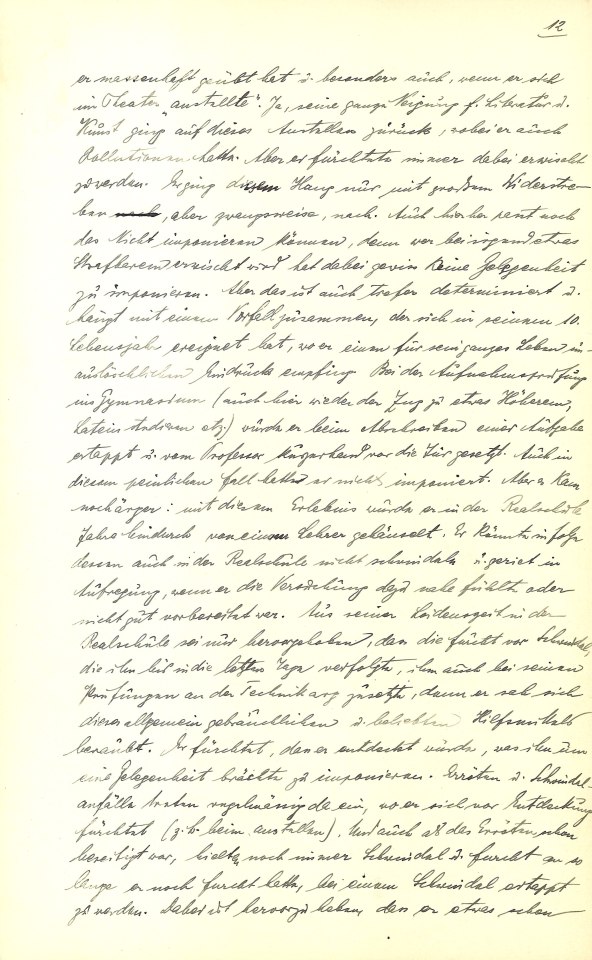 12
er massenhaft geübt hat u. besonders auch, wenn er sich
im Theater "anstellte". Ja, seine ganze Neigung f. Literatur u.
Kunst ging auf dieses Anstellen zurück, wobei er auch
Pollutionen hatte. Aber er fürchtete immer dabei erwischt
zu werden. Er ging diesem Hang nur mit großem Widerstre-
ben nach, aber zwangsweise, nach. Auch hierher passt noch
das Nicht imponieren können, denn wer bei irgend etwas
Strafbarem erwischt wird hat dabei gewiss keine Gelegenheit
zu imponieren. Aber das ist auch tiefer determiniert u.
hängt mit einem Vorfall zusammen, der sich in seinem 10.
Lebensjahr ereignet hat, wo er einen für sein ganzes Leben un-
auslöschlichen Eindruck empfing. Bei der Aufnahmsprüfung
ins Gymnasium (auch hier wieder der Zug zu etwas Höherem,
Latein studieren etz.) wurde er beim Abschreiben einer Aufgabe
ertappt u. vom Professor kurzerhand vor die Tür gesetzt. Auch in
diesem peinlichen Fall hatte er nicht imponiert. Aber es kam
noch ärger: mit diesem Erlebnis wurde er in der Realschule
Jahre hindurch von einem Lehrer gehänselt. Er konnte infolge
dessen auch in der Realschule nicht schwindeln u. geriet in
Aufregung, wenn er die Versuchung dazu nahe fühlte oder
nicht gut vorbereitet war. Aus seiner Leidenszeit in der
Realschule sei nur hervorgehoben, dass die Furcht vor Schwindel,
die ihn bis in die letzten Tage verfolgte, ihm auch bei seinen
Prüfungen an der Technik arg zusetzte, denn er sah sich
dieses allgemein gebräuchlichen u. beliebten Hilfsmittels
beraubt. Er fürchtet, dass er entdeckt würde, was ihn um
eine Gelegenheit brächte zu imponieren. Erröten u. Schwindel-
anfälle traten regelmässig da ein, wo er sich vor Entdeckung
fürchtet (z.b. beim anstellen). Und auch als das Erröten schon
beseitigt war, hielten noch immer Schwindel u. Furcht an so
lange er noch Furcht hatte, bei einem Schwindel ertappt
zu werden. Dabei ist hervorzuheben, dass er etwas schon